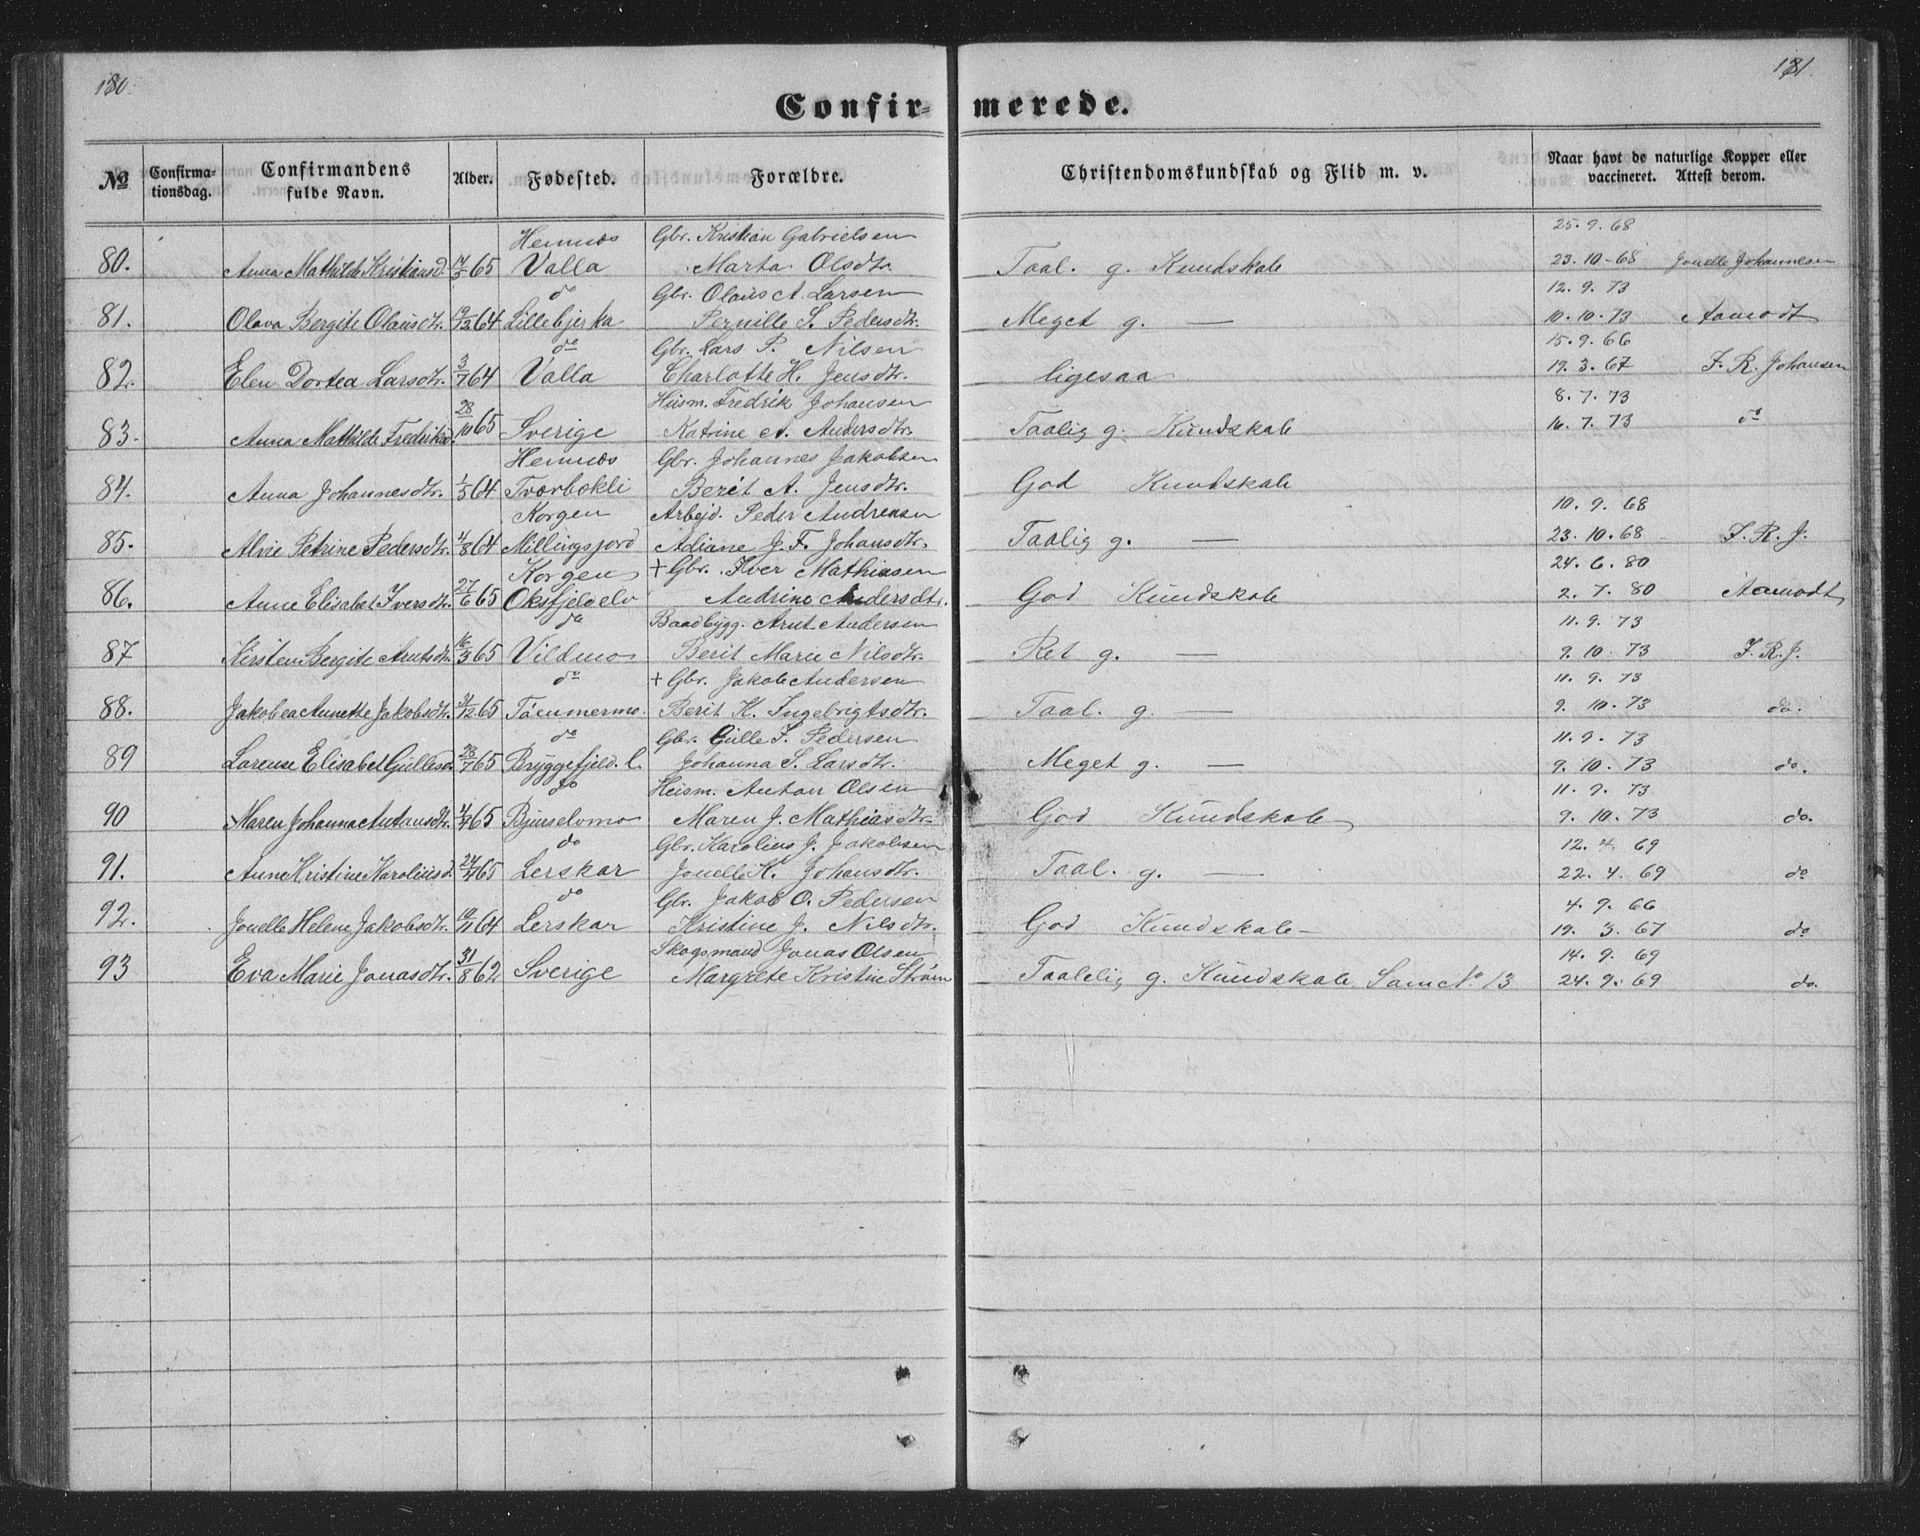 180.
181.
Confir- merede.
No
Confirma-
tionsdag.
Confirmandens
fulde Navn.
Alder.
Fødested.
Forældre.
Christendomskundskab og Flid m. v.
Naar havt de naturlige Kopper eller
vaccineret. Attest derom.
Hemnæs Gbr. Kristian Gabrielsen 25. 9. 68
80. Anna Mathilde Kristiansd. 65 Valla Marta Olsdtr. Taal. g. Kundskab 23. 10 - 68 Jonelle Johannesen
do Gbr. Olaus A. Larsen 12. 9. 73
81. Olava Bergite Olausdtr. 19/12 64 Lillebjerka Pernille S. Pedersdtr. Meget g. — 10. 10. 73 Aamodt
do Gbr. Lars P. Nilsen 15. 9. 66
82. Elen Dortea Larsdtr. 3/7 64 Valla Charlotte H. Jensdtr. ligesaa 19. 3. 67 F. R. Johansen
Husm. Fredrik Johansen 8. 7. 73
83. Anna Mathilde Fredriksd. 28/10 65 Sverige Katrine A. Andersdtr. Taalig g. Kundskab 16. 7. 73 do
Hemnæs Gbr. Johannes Jakobsen
84. Anna Johannesdtr. 1/5 64 Tværbækli Berit A. Jensdtr. God Kundskab
Korgen Arbejd. Peder Andreasen 10. 9. 68
85. Alvie Petrine Pedersdtr. 4/8 64 Millingsjord Adiane J. F. Johansdtr. Taalig g. — 23. 10. 68 F. R. J.
Korgen + Gbr. Iver Mathiasen 24. 6. 80
86. Anne Elisabet Iversdtr. 27/6 65 Oksfjelelv Andrine Andersdtr. God Kundskab 2. 7. 80 Aamodt
do Baadbygg. Arnt Andersen 11. 9. 73
87 Kirsten Bergite Arntsdtr. 16/3 65 Vildmo Berit Marie Nilsdtr. Ret g. — 9. 10. 73 F. R. J.
do + Gbr. Jakob Andersen 11. 9. 73
88. Jakobea Annette Jakobsdtr. 65 Berit K. Ingebrigtsdtr. Taal. g. — 9. 10. 73 do.
do Gbr. Gulle S. Pedersen 11. 9. 73
89 Lorense Elisabet Gullesd. 28/7 65 Bryggefjeld. l. Johanna S. Larsdtr. Meget g. — 9. 10. 73 do.
do Husm. Anton Olsen 11. 9. 73
90 Maren Johanna Antonsdtr. 65 Bjurselvmo Maren J. Mathiasdtr. God Kundskab 9. 10. 73 do.
do Gbr. Karolius J. Jakobsen 12. 4 69
91. Anne Kristine Karoliusd. 65 Lerskar Jonelle K. Johansdtr. Taal. g. — 22. 4. 69 do
do Gbr. Jakob O. Pedersen 4. 9. 66
92. Jonelle Helene Jakobsdtr. 19/11 64 Lerskar Kristine J. Nilsdtr. God Kundskab - 19. 3. 67 do
Skogsmand Jonas Olsen 14. 9. 69
93 Eva Marie Jonasdtr. 31/8 62 Sverige Margrete Kristine Strøm Taalelig g. Kundskab. Sam No 13 24. 9. 69 do.